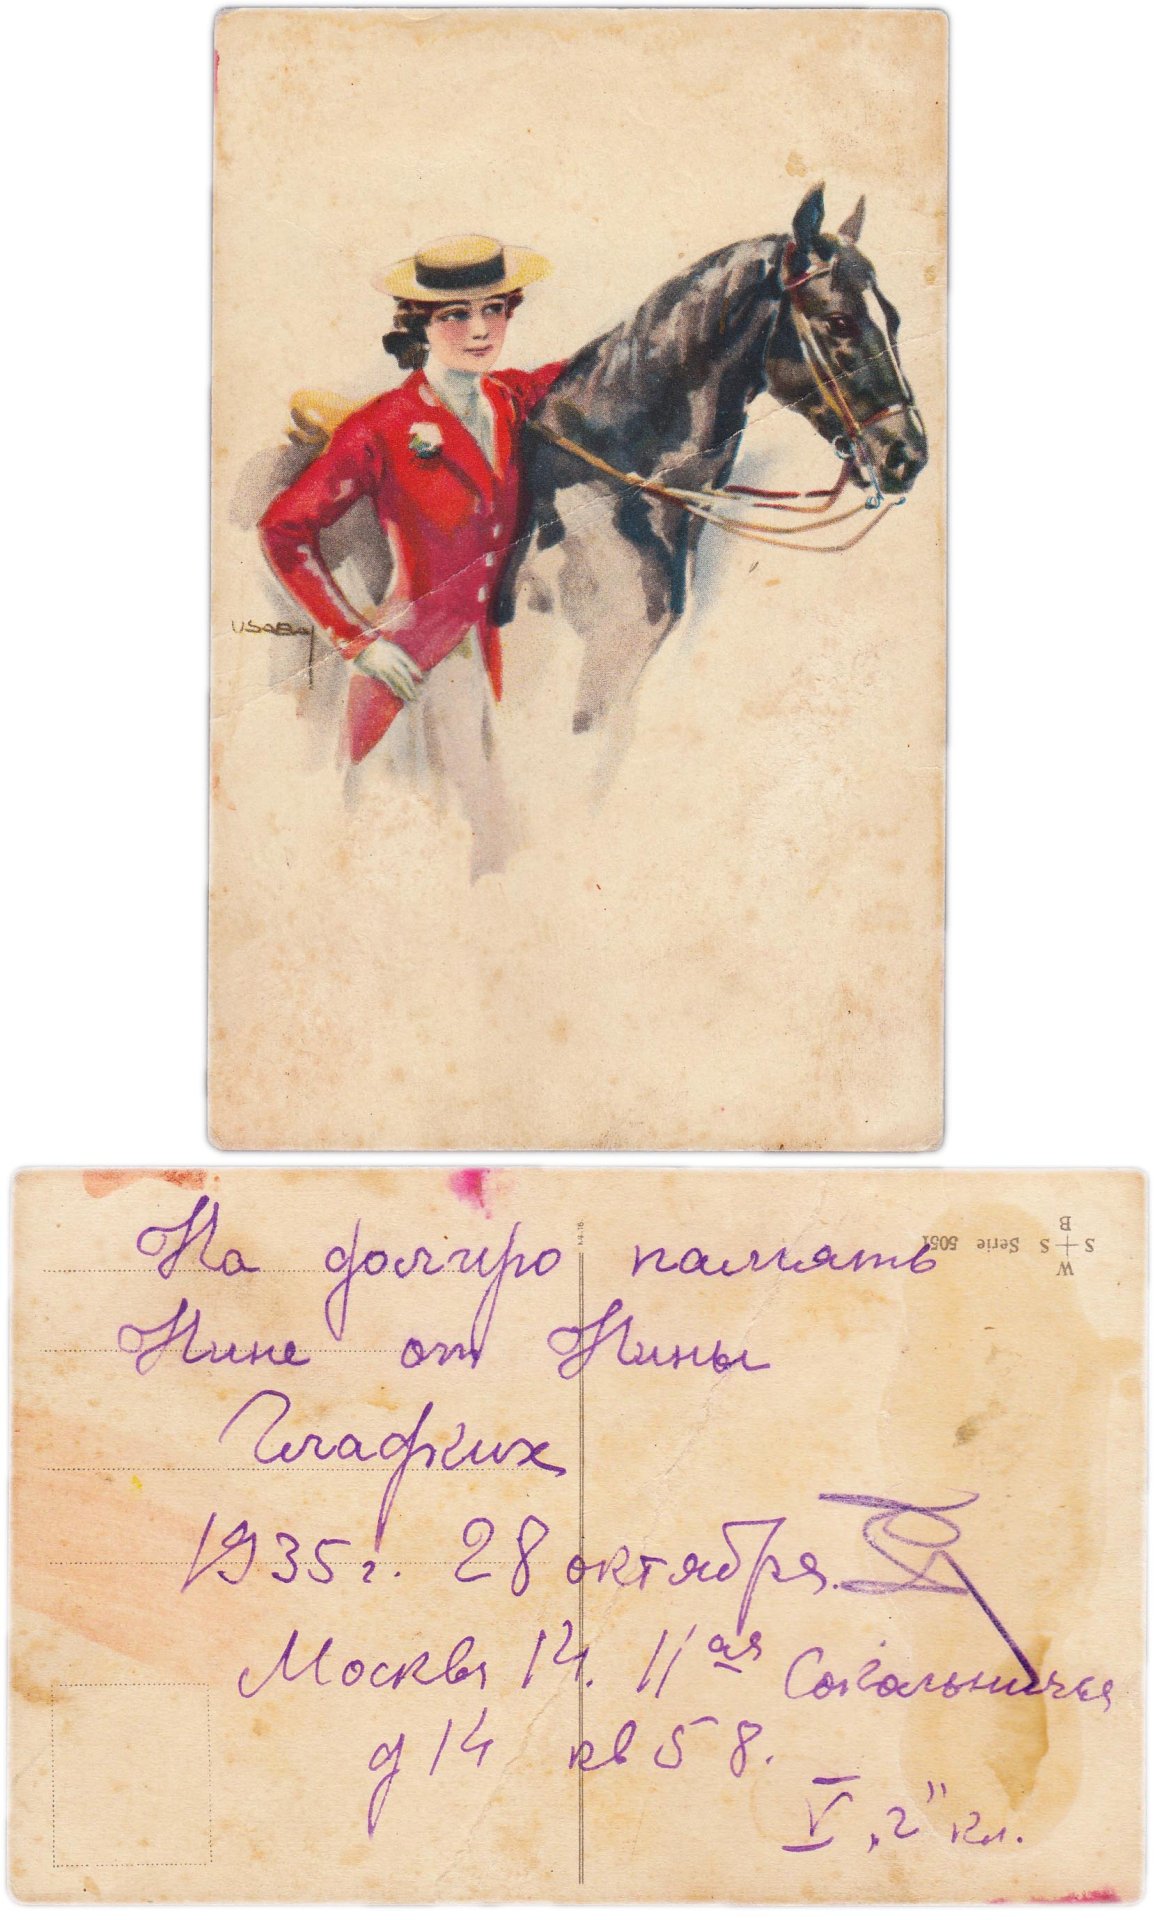 USABAL
На долгую память
Нине от Нины
Гладких
1935 г. 28 октября.
Москва 14. 11ая Сокольничья
д 14 кв 58.
V „г" кл.
W
S S Serie 5051
B